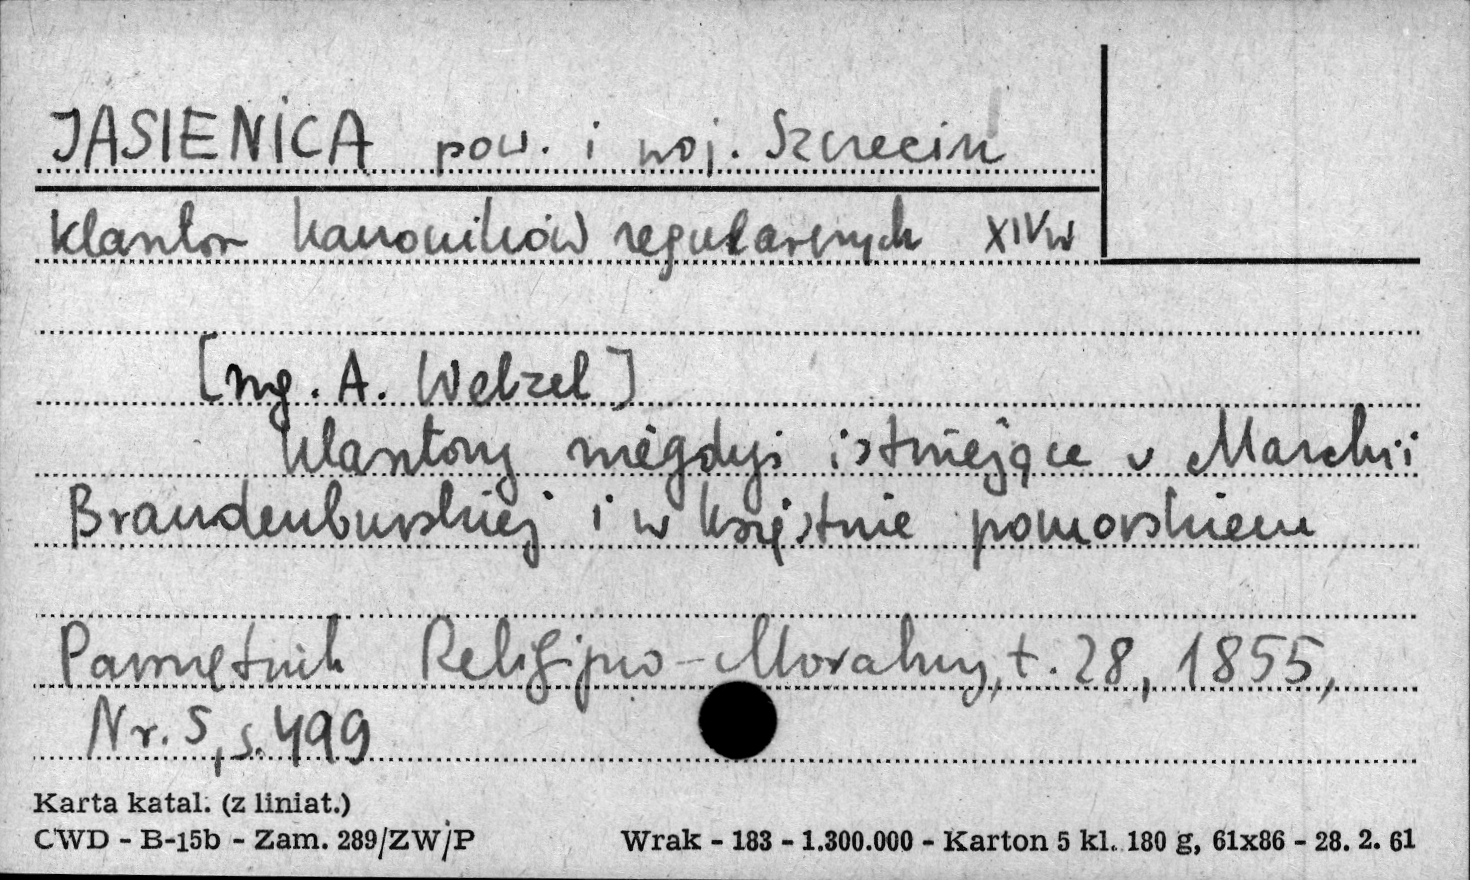 JASIENICA pow. i woj. Szczecin
klasztor kanoników regularnych XIVw
[ng. A. Welzel]
klasztory niegdyś istniejące w Marchii
Brandenburskiej i w księstwie pomorskiem
Pamiętnik Religijno-Moralny, t. 28, 1855,
Nr. 5, s. 499
Karta katal. (z liniat.)
CWD - B-15b - Zam. 289/ZW/P Wrak - 183 - 1.300.000 - Karton 5 kl. 180 g, 61x86 - 28. 2. 61